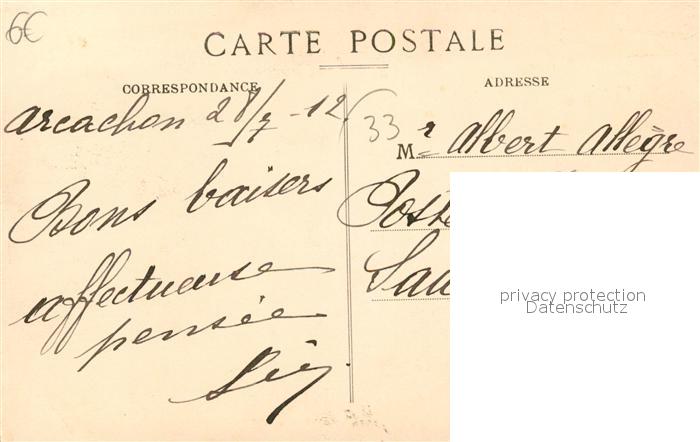 6€
CARTE POSTALE
CORRESPONDANCE
ADRESSE
Arcachon 28/7 - 12
33
Mr Albert Allègre
Bons baisers
Poste
affectueuse
pensée
privacy protection
Datenschutz